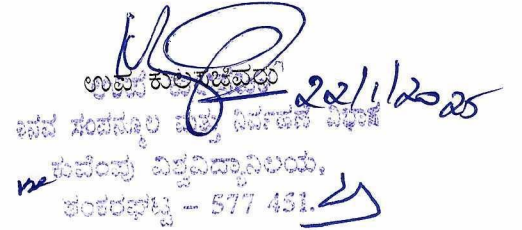 ಉಪ ಕುಲಸಚಿವರು 22/1/2025
ಮಾನವ ಸಂಪನ್ಮೂಲ ಮತ್ತು ನಿರ್ವಹಣೆ ವಿಭಾಗ
ಕುವೆಂಪು ವಿಶ್ವವಿದ್ಯಾನಿಲಯ,
ಶಂಕರಘಟ್ಟ – 577 451.